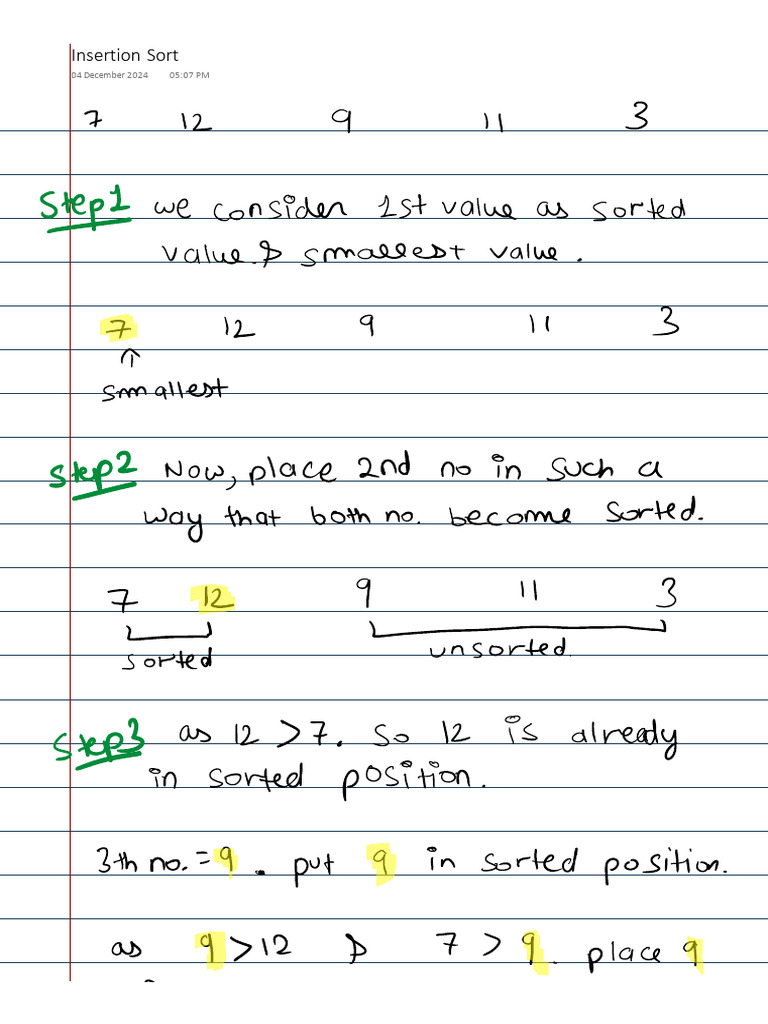 Insertion Sort
04 December 2024 05:07 PM
7 12 9 11 3
Step1 we consider 1st value as sorted
value & smallest value.
7 12 9 11 3
↑
smallest
Step2 Now, place 2nd no in such a
way that both no. become sorted.
7 12 9 11 3
sorted unsorted
Step3 as 12 > 7. so 12 is already
in sorted position.
3th no. = 9. put 9 in sorted position.
as 9 > 12 & 7 > 9. place 9